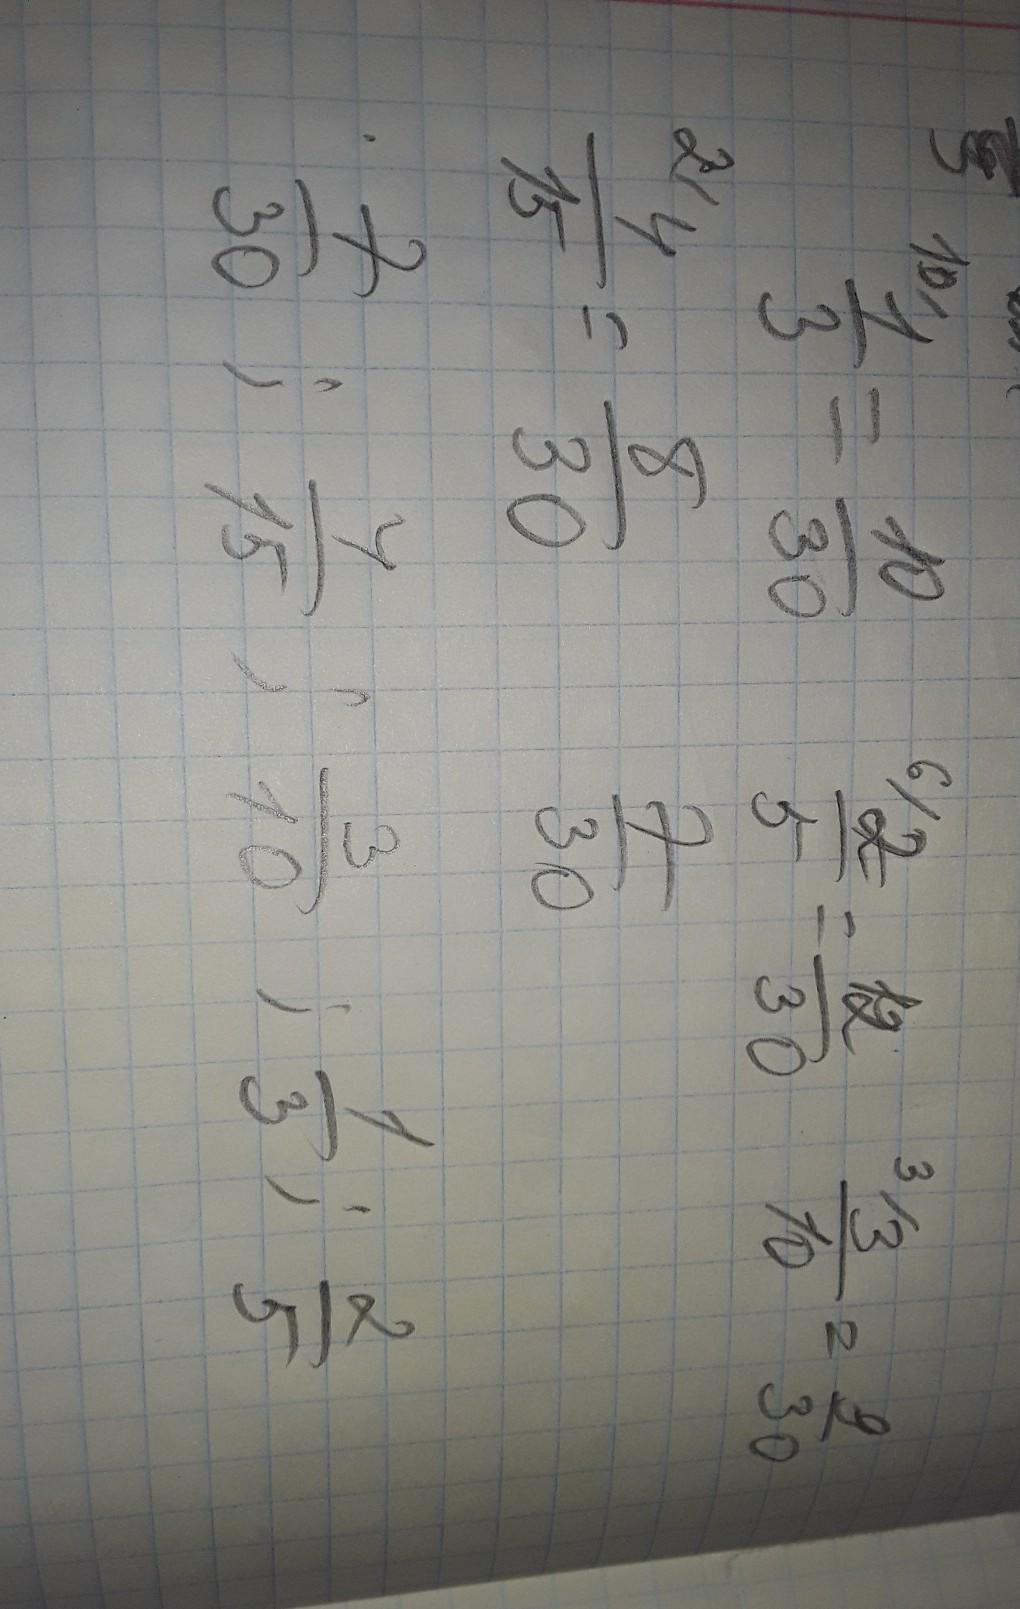 10/ 1/3 = 10/30 6/ 2/5 = 12/30 3/ 3/10 = 9/30
2/ 4/15 = 8/30 7/30
7/30 ; 4/15 ; 3/10 ; 1/3 ; 2/5